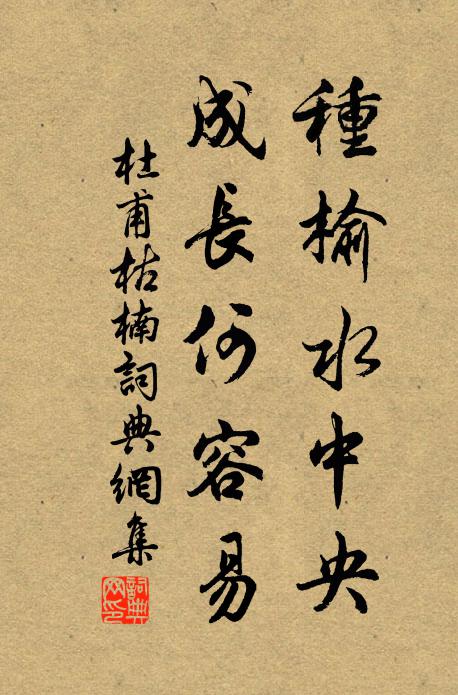 種榆水中央
成長何容易
杜甫枯楠詞典網集
詞典網印